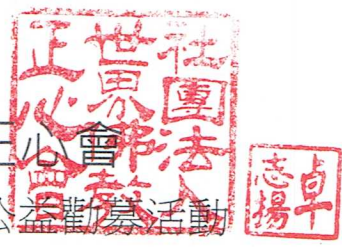 社團法人
世界佛教
正心會
正心會
公益勸募活動
卓
志揚